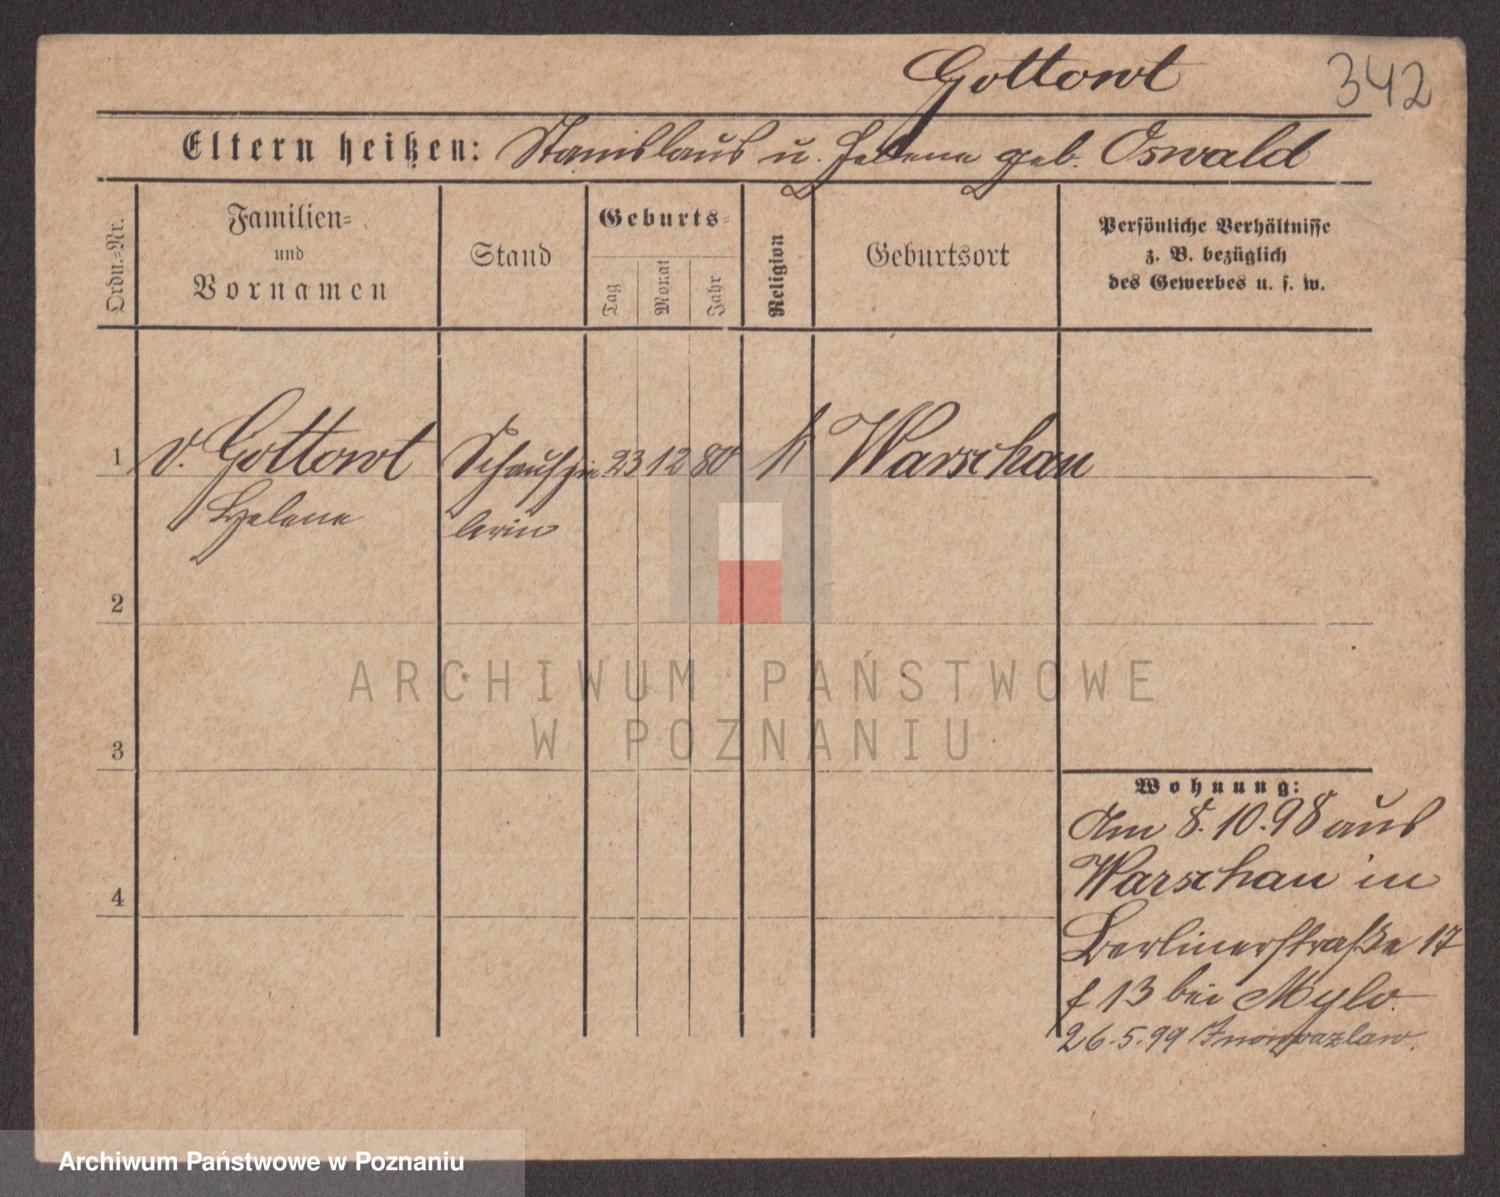 Gottowt 342
Eltern heißen: Stanislaus u. Helene geb. Oswald
Ordn.-Nr.
Familien-
und
Vornamen
Stand
Geburts-
Tag
Monat
Jahr
Religion
Geburtsort
Persönliche Verhältnisse
z. B. bezüglich
des Gewerbes u. s. w.
1 v. Gottowt Schauspie 23 12 80 k Warschau
Helene lerin
2
3
4
Wohnung:
Am 8.10.98 aus
Warschau in
Berlinerstraße 17
f 13 bei Mylo.
26.5.99 Inowrazlaw.
ARCHIWUM PAŃSTWOWE
W POZNANIU
Archiwum Państwowe w Poznaniu